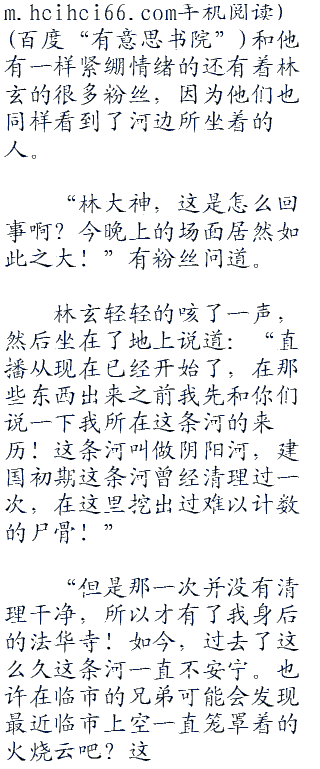 m.hcihci66.com手机阅读)
(百度“有意思书院”)和他
有一样紧绷情绪的还有着林
玄的很多粉丝，因为他们也
同样看到了河边所坐着的
人。
“林大神，这是怎么回
事啊？今晚上的场面居然如
此之大！”有粉丝问道。
林玄轻轻的咳了一声，
然后坐在了地上说道：“直
播从现在已经开始了，在那
些东西出来之前我先和你们
说一下我所在这条河的来
历！这条河叫做阴阳河，建
国初期这条河曾经清理过一
次，在这里挖出过难以计数
的尸骨！”
“但是那一次并没有清
理干净，所以才有了我身后
的法华寺！如今，过去了这
么久这条河一直不安宁。也
许在临市的兄弟可能会发现
最近临市上空一直笼罩着的
火烧云吧？这